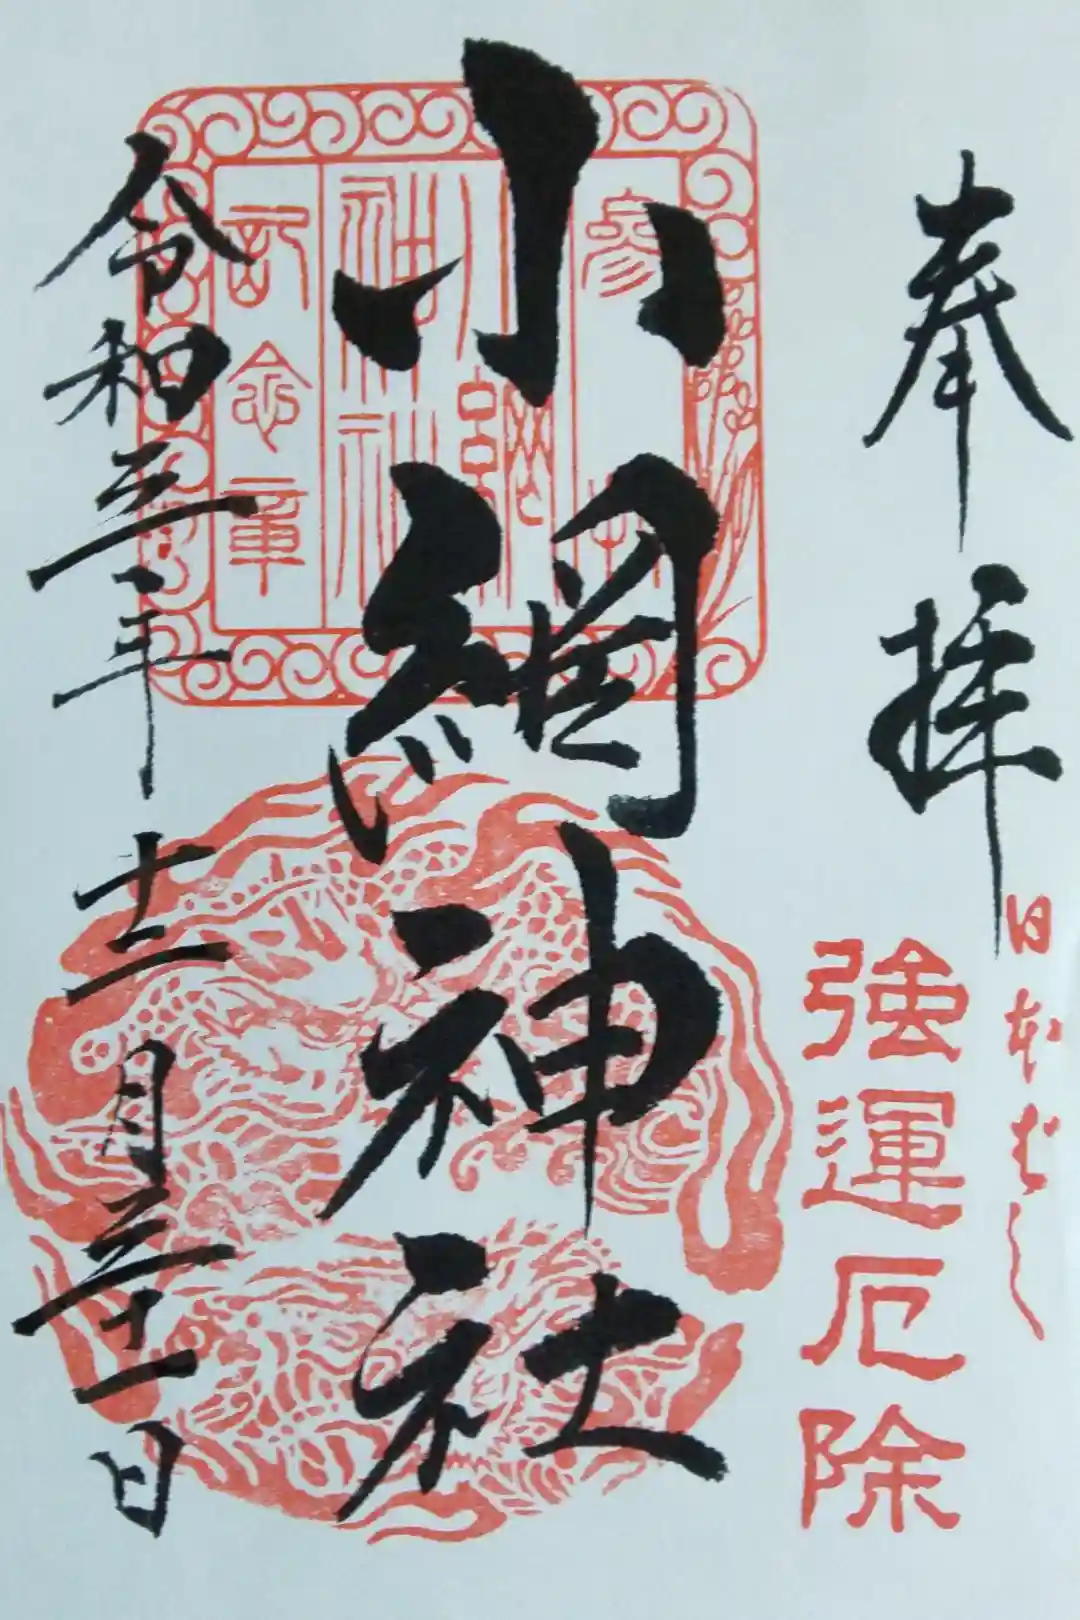 奉拝
日本橋
強運厄除
小網神社
令和三年十二月三十一日
記念章